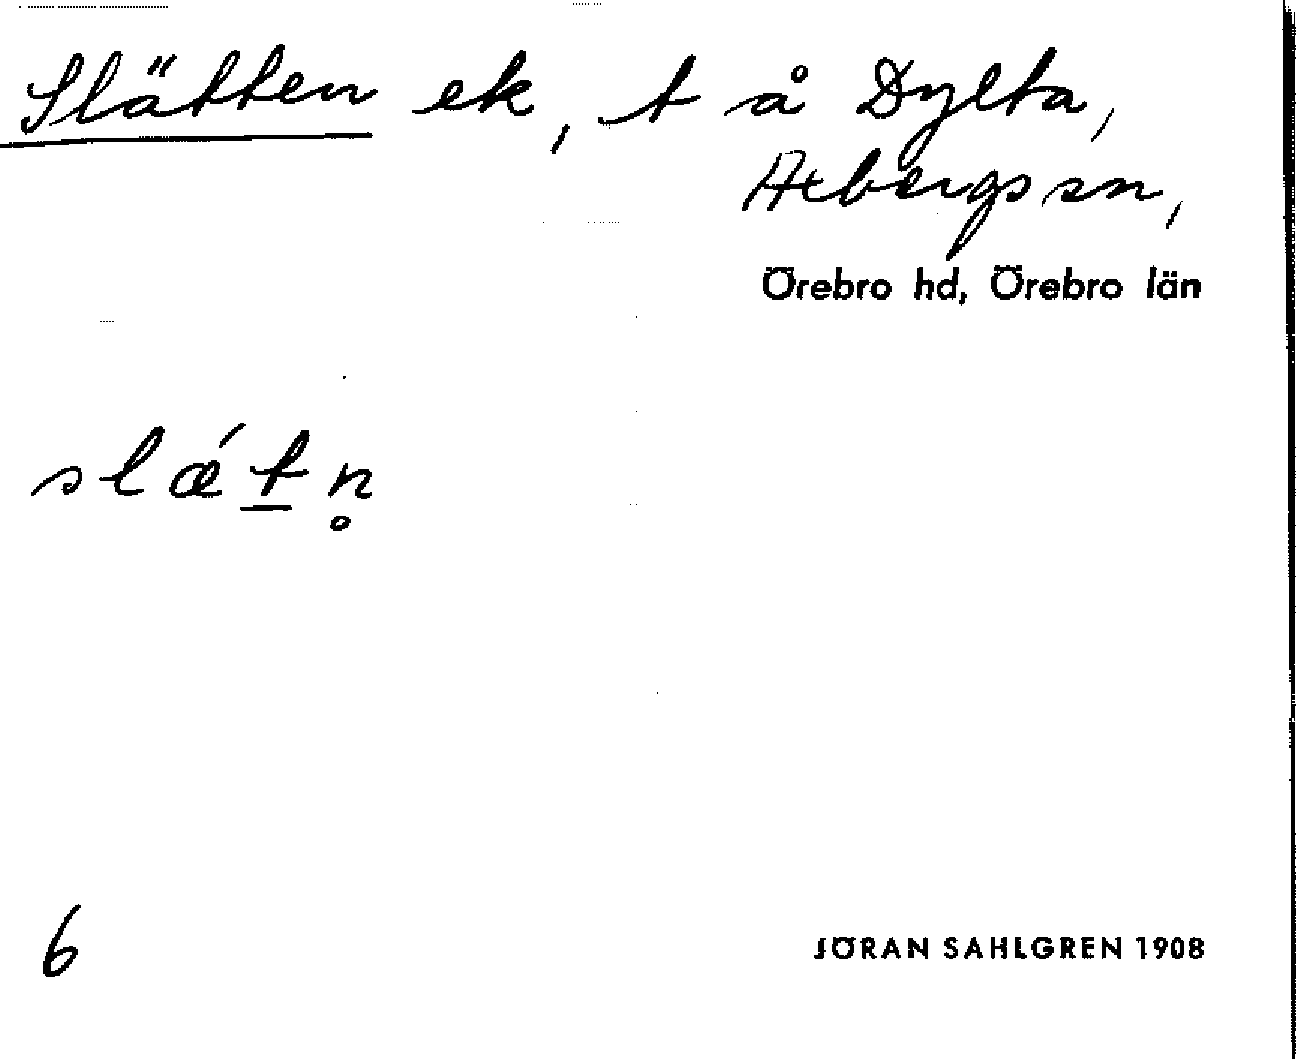 Slätten ek, t å Dylta,
Axbergs sn,
Örebro hd, Örebro län
slǽt̲n̥
6
JÖRAN SAHLGREN 1908